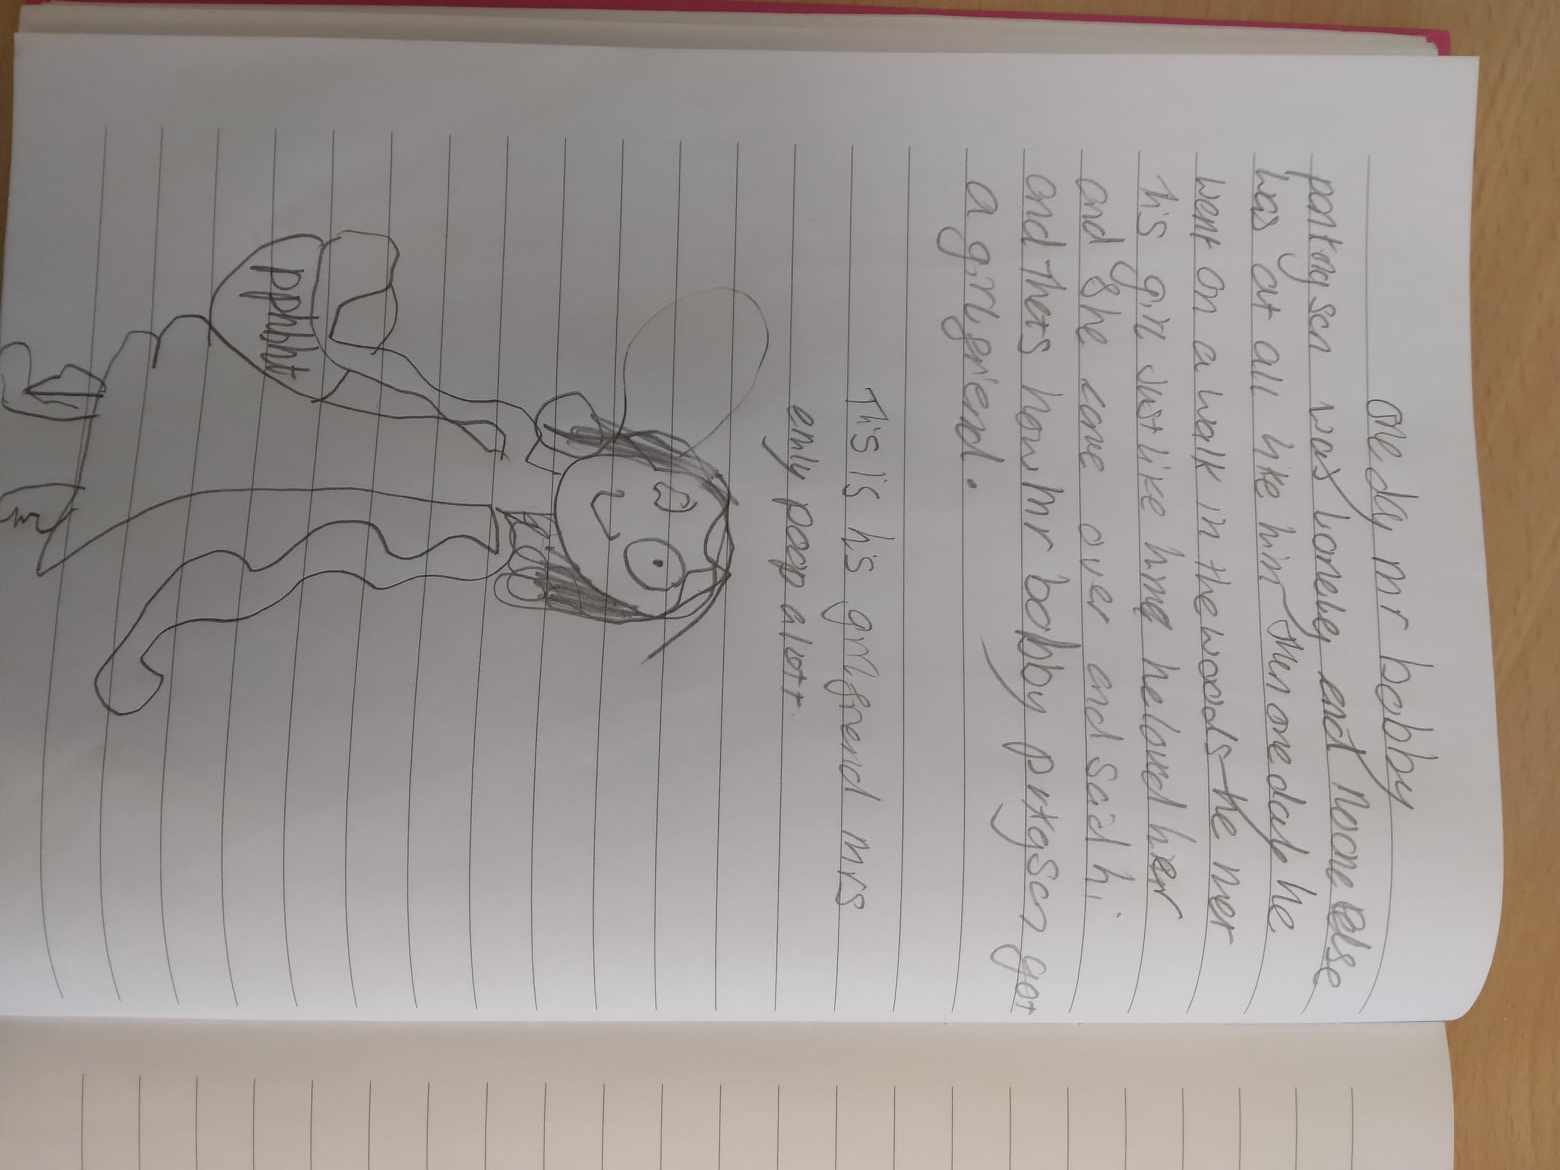 One dy mr bobby
pantagscn was Loneley and noone else
was at all like him then one day he
went on a walk in the woods the mer
this girl just like hime he loved her
and she come over and said hi
and thets how mr bobby prtgscn got
a girlfriend.
This is his girlfriend mrs
emly poop a lott
pphhht